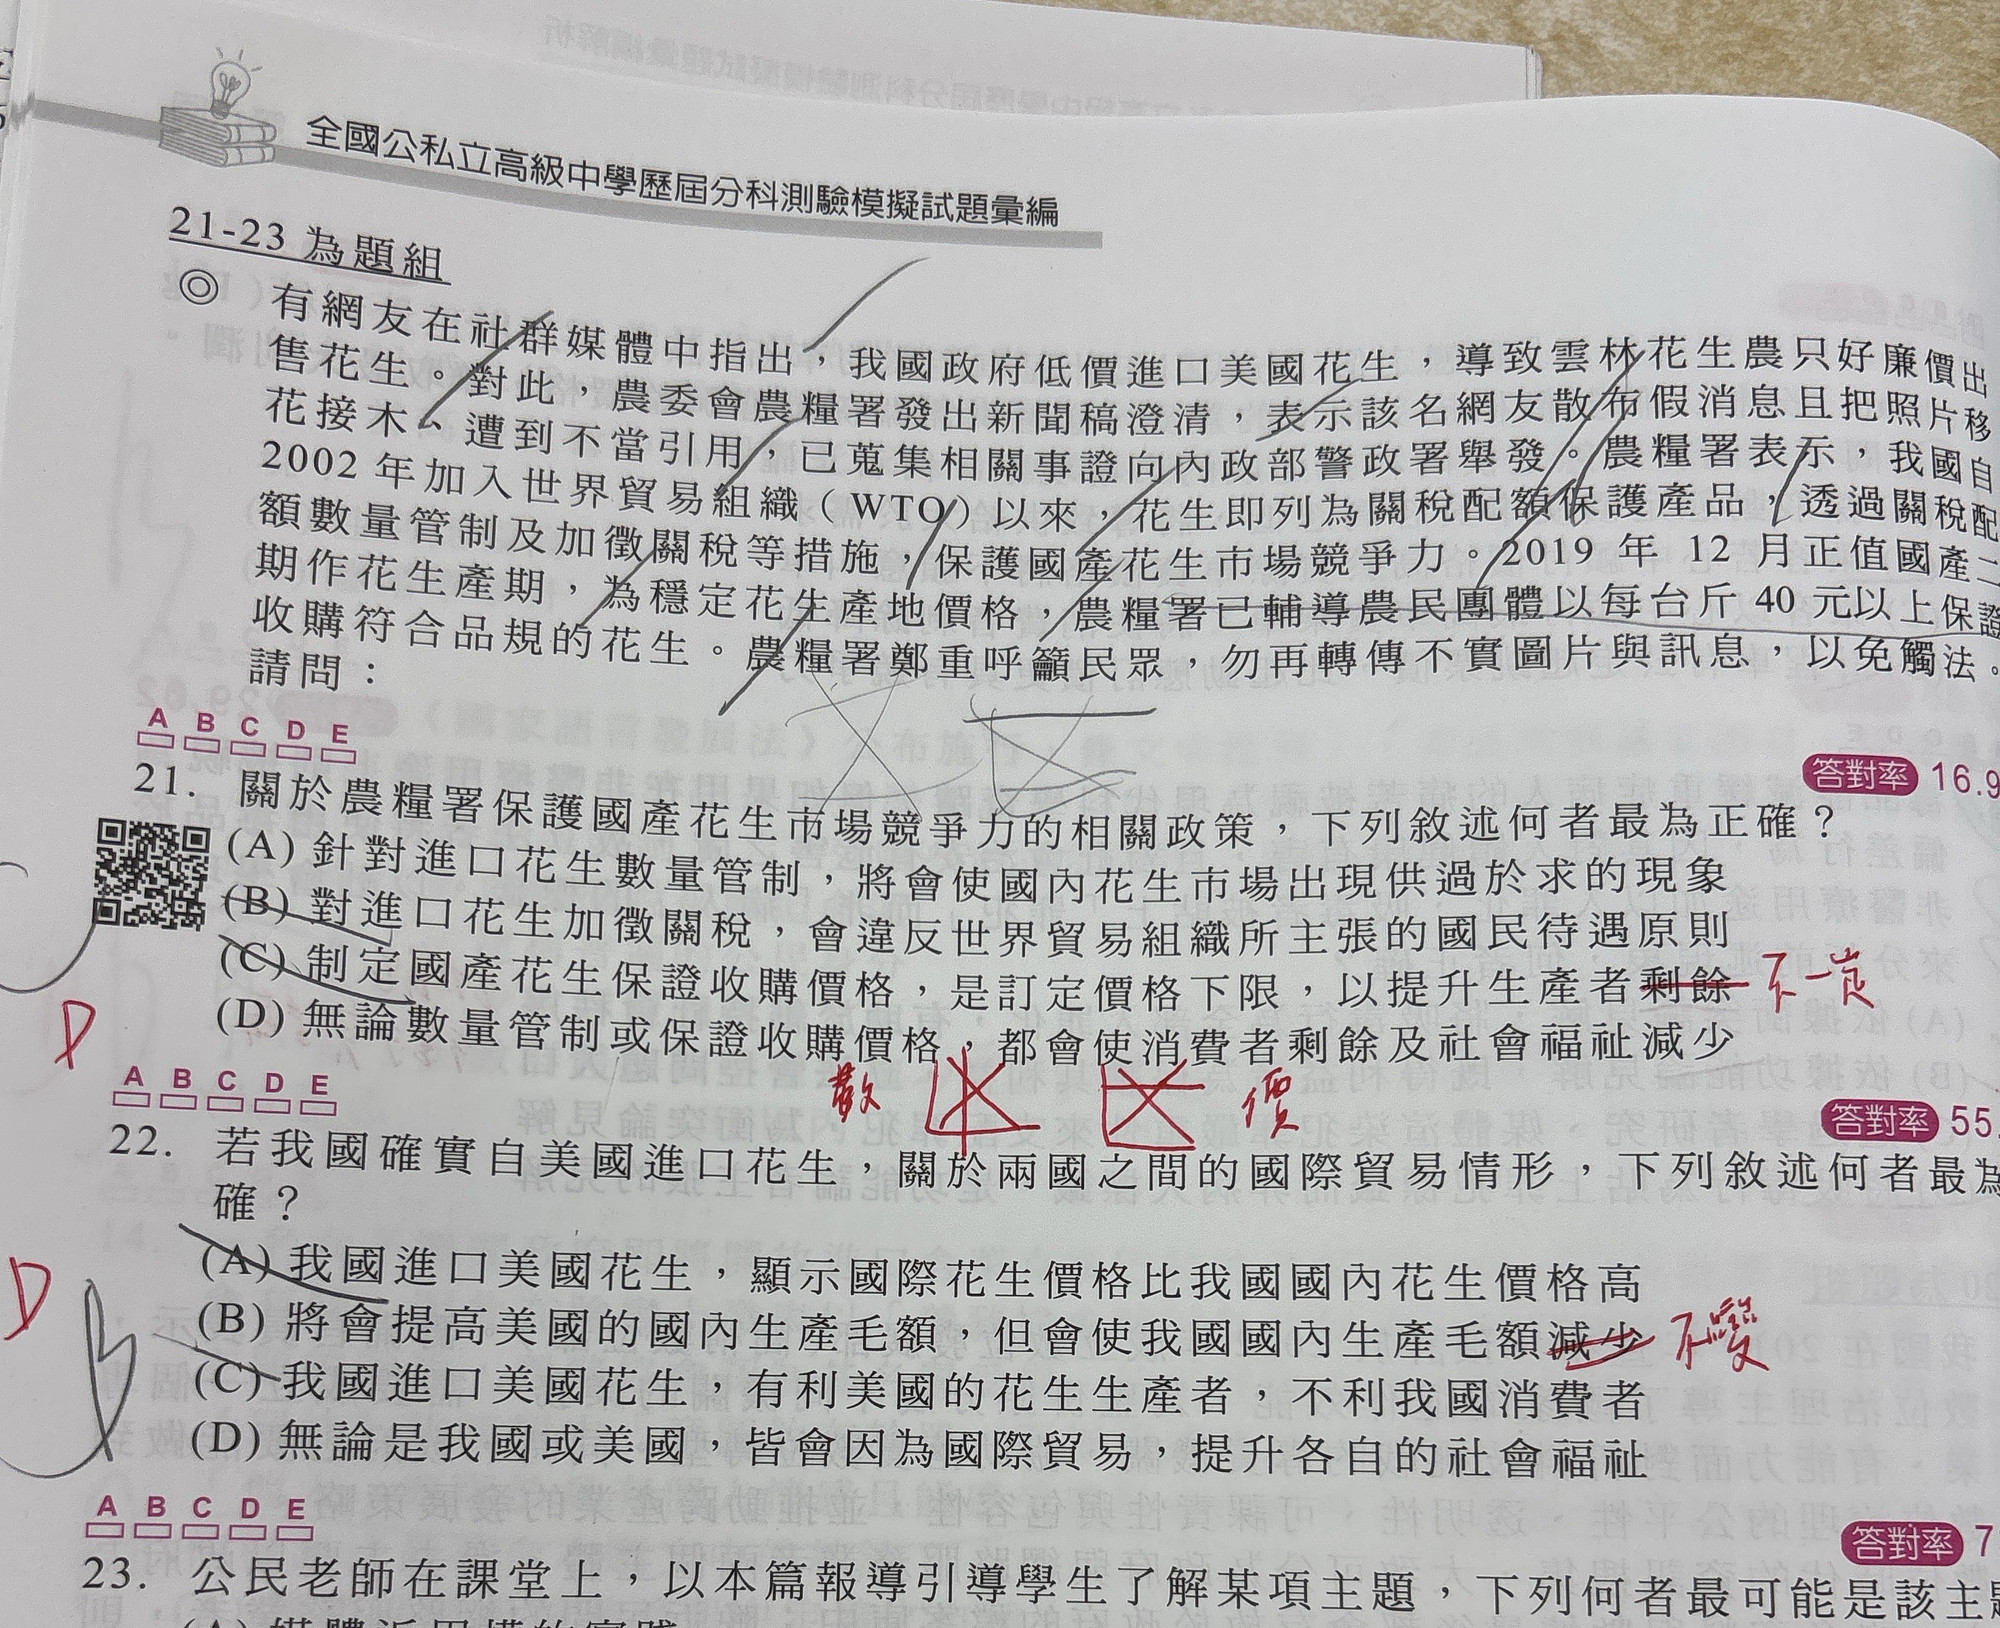 全國公私立高級中學歷屆分科測驗模擬試題彙編
21-23 為題組
◎ 有網友在社群媒體中指出，我國政府低價進口美國花生，導致雲林花生農只好廉價出
售花生。對此，農委會農糧署發出新聞稿澄清，表示該名網友散布假消息且把照片移
花接木、遭到不當引用，已蒐集相關事證向內政部警政署舉發。農糧署表示，我國自
2002 年加入世界貿易組織（WTO）以來，花生即列為關稅配額保護產品，透過關稅配
額數量管制及加徵關稅等措施，保護國產花生市場競爭力。2019 年 12 月正值國產二
期作花生產期，為穩定花生產地價格，農糧署已輔導農民團體以每台斤 40 元以上保證
收購符合品規的花生。農糧署鄭重呼籲民眾，勿再轉傳不實圖片與訊息，以免觸法。
請問：
A B C D E
答對率 16.9
21. 關於農糧署保護國產花生市場競爭力的相關政策，下列敘述何者最為正確？
(A) 針對進口花生數量管制，將會使國內花生市場出現供過於求的現象
(B) 對進口花生加徵關稅，會違反世界貿易組織所主張的國民待遇原則
(C) 制定國產花生保證收購價格，是訂定價格下限，以提升生產者剩餘 不一定
D
(D) 無論數量管制或保證收購價格，都會使消費者剩餘及社會福祉減少
數 價
A B C D E
答對率 55.
22. 若我國確實自美國進口花生，關於兩國之間的國際貿易情形，下列敘述何者最為
確？
(A) 我國進口美國花生，顯示國際花生價格比我國國內花生價格高
D
(B) 將會提高美國的國內生產毛額，但會使我國國內生產毛額減少 不變
(C) 我國進口美國花生，有利美國的花生生產者，不利我國消費者
(D) 無論是我國或美國，皆會因為國際貿易，提升各自的社會福祉
A B C D E
答對率 7
23. 公民老師在課堂上，以本篇報導引導學生了解某項主題，下列何者最可能是該主題